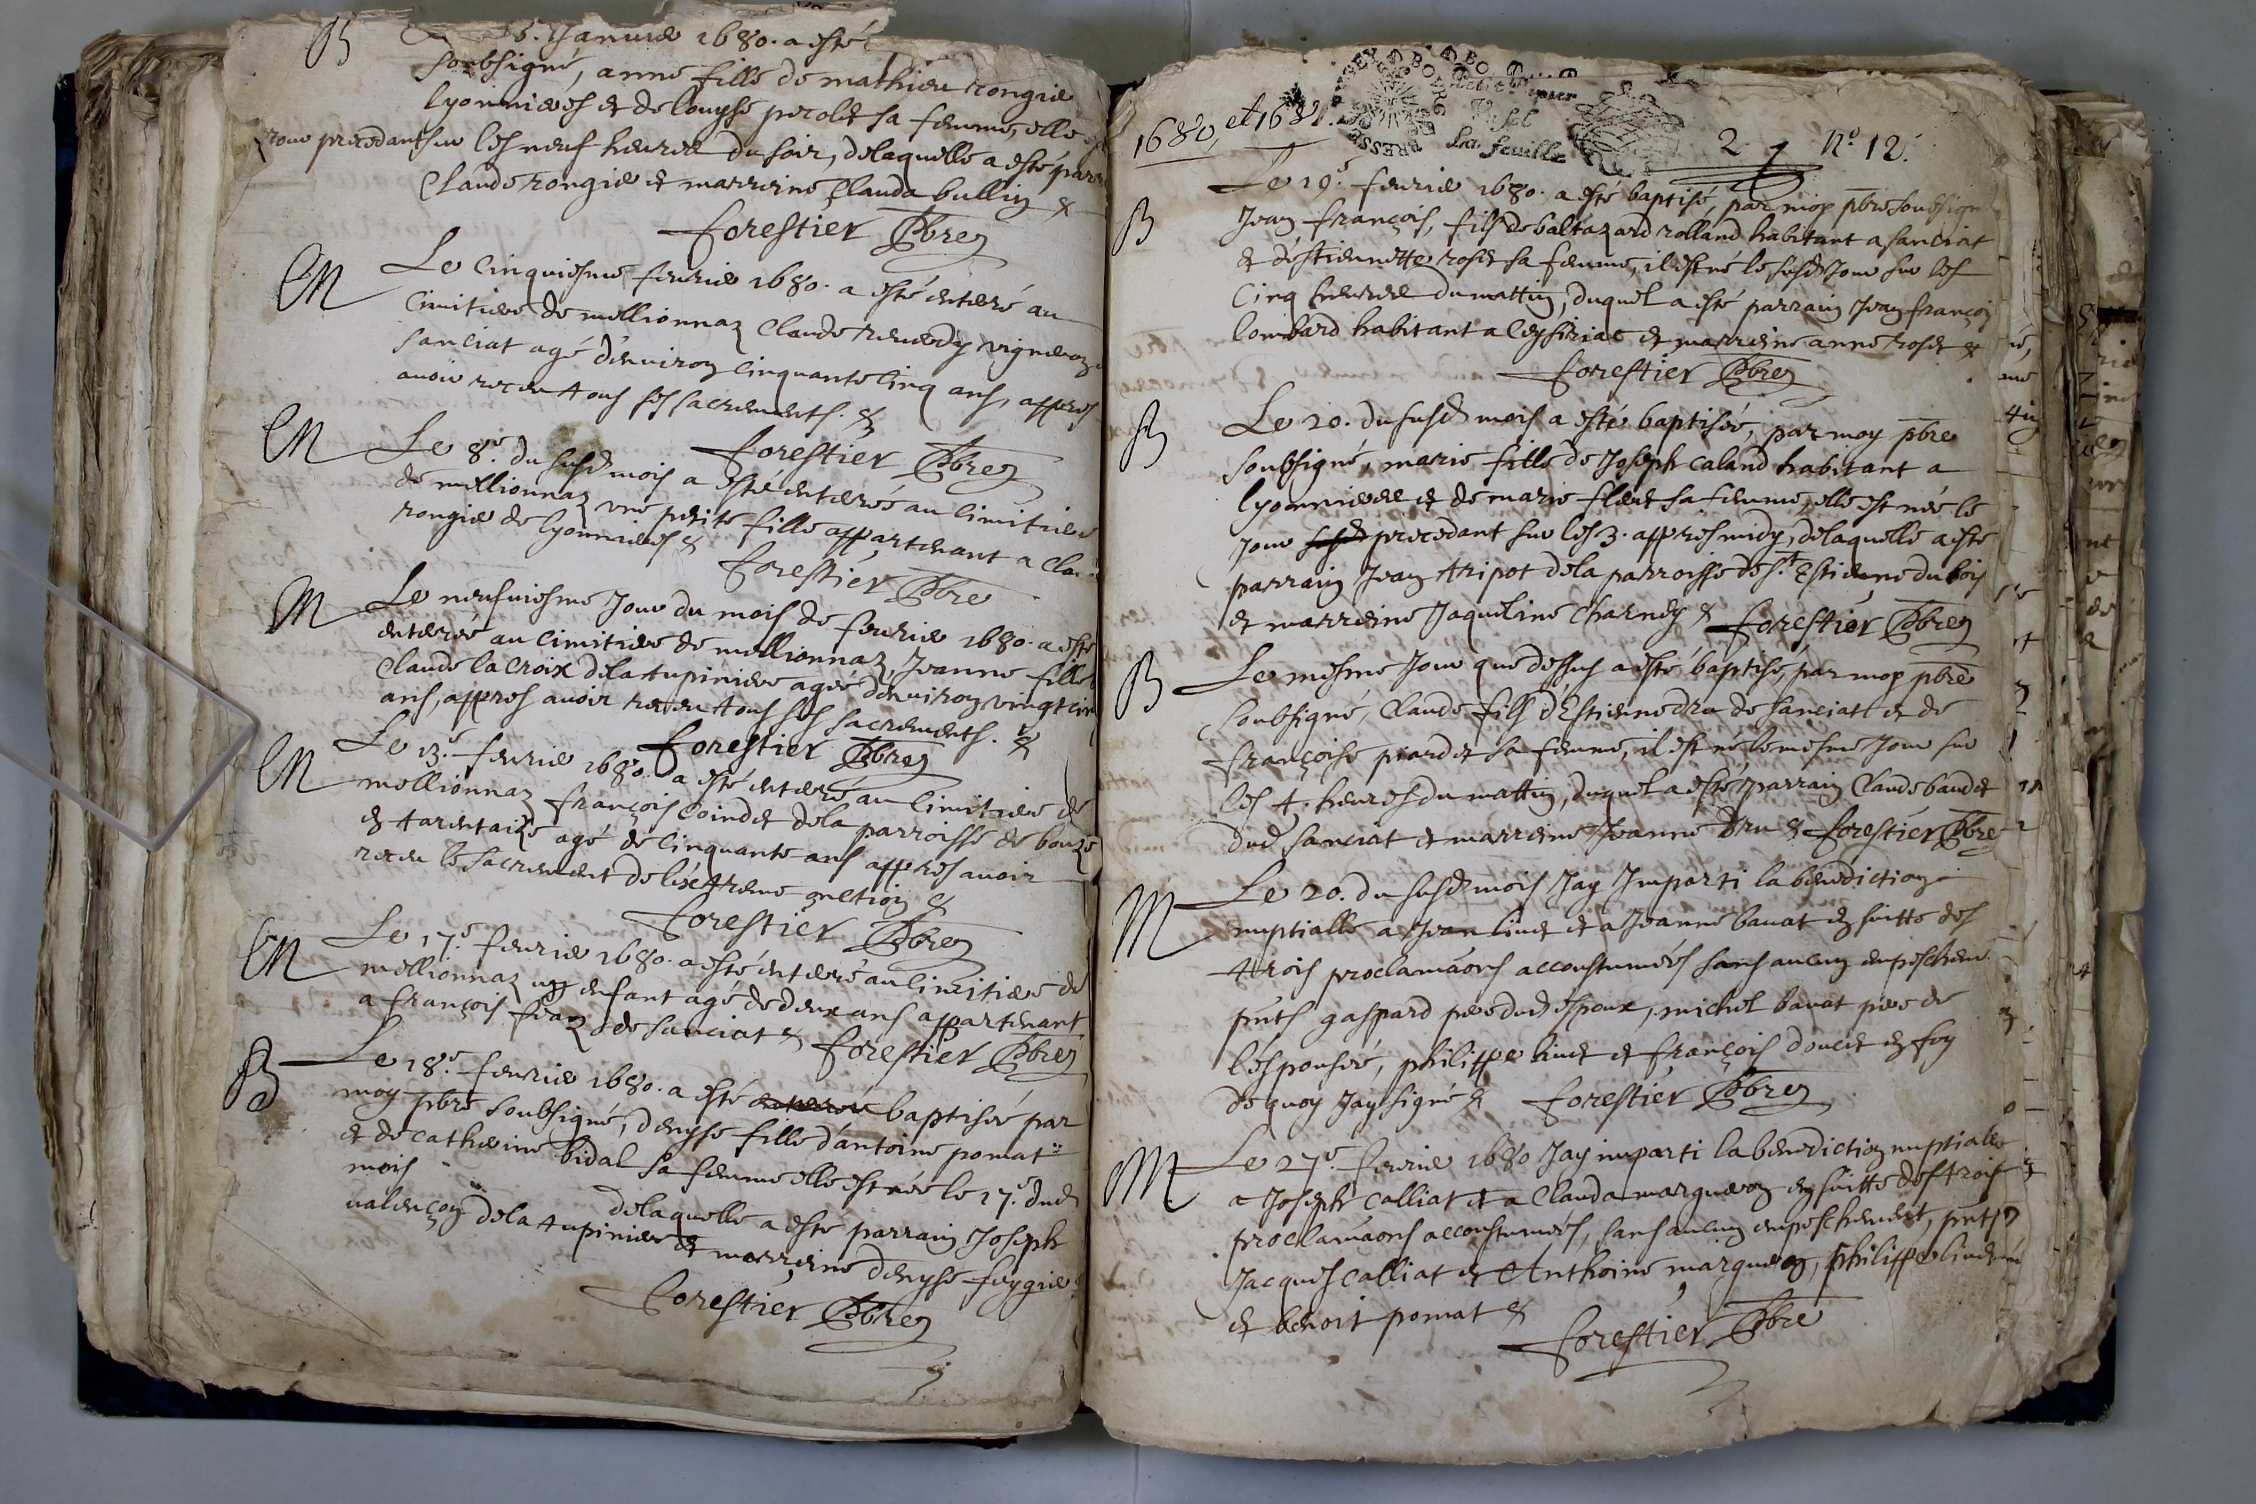 B
6. Januier 1680. a esté
soubsigné, anne fille de mathieu rongier
lyonnieres et de louyse perolet sa femme, elle
jour precedant sur les neuf heures du soir, de laquelle a esté parr
Claude rongier et marreine Clauda bullin &
forestier Pbre
M
Le cinquiesme feurier 1680. a esté enterré au
cimitiere de meillionnaz Claude reuerdy vigneron
sanciat agé d'enuiron cinquante cinq ans, appres
auoir receu tous ses sacrements. &
forestier Pbre
M
Le 8.e du susd mois a esté enterrée au cimitiere
de meillionnaz vne petite fille appartenant a Clau
rongier de lyonnieres &
forestier Pbre
M
Le neufuiesme jour du mois de feurier 1680. a esté
enterrée au cimitiere de meillionnaz, Jeanne fille
Claude la croix de la tupiniere agée d'enuiron vingt cin
ans, appres auoir receu tous ses sacrements. &
forestier Pbre
M
Le 13.e feurier 1680. a esté enterré au cimitiere de
meillionnaz françois coindet de la parroisse de bouze
en tarentaize agé de cinquante ans appres auoir
receu le sacrement de l'extreme onction &
forestier Pbre
M
Le 17.e feurier 1680. a esté enterré au cimitiere de
meillionnaz un enfant agé de deux ans appartenant
a françois de sanciat & forestier Pbre
B
Le 18.e feurier 1680. a esté enterrée baptisée par
moy pbre soubsigné, denyse fille d'antoine pomat
et de catherine bidal sa femme elle est née le 17.e dud
mois
de laquelle a esté parrain Joseph
valençon de la tupiniere et marreine denyse feygrie
forestier Pbre
1680, et 1681.
BOURG
PRESSE
Petit Papier
La feuille
2
No 12.
B
Le 19.e feurier 1680. a esté baptisé, par moy pbre soubsign
Jean françois, fils de baltazard rolland habitant a sanciat
et d'estiennette roset sa femme, il est né le susd jour sur les
cinq heures du mattin, duquel a esté parrain Jean françois
lombard habitant a ceyseriac et marreine anne roset &
forestier Pbre
B
Le 20. du susd mois a esté baptisée, par moy pbre
soubsigné, marie fille de Joseph caland habitant a
lyonniere et de marie fleur sa femme, elle est née le
jour susd precedant sur les 3. appres midy, de laquelle a esté
parrain Jean tripot de la parroisse de st Estienne du bois
et marreine Jaqueline charndy & forestier Pbre
B
Le mesme jour que dessus a esté baptisé, par moy pbre
soubsigné, Claude fils d'Estienne dru de sanciat et de
françoise piardet sa femme, il est né le mesme jour sur
les 4. heures du mattin, duquel a esté parrain Claude baudet
dud sanciat et marreine Jeanne Dru & forestier Pbre
M
Le 20. du susd mois Jay Imparti la benediction
nuptialle a Jean liuet et a Jeanne bauat en suitte des
trois proclamaons accoustumées sans aucun empeschem
pnts gaspard pere dud espoux, michel bauat pere de
l'espousée, philippe liuet et françois doucet en foy
de quoy Jay signé & forestier Pbre
M
Le 27.e feurier 1680 Jay imparti la benediction nuptialle
a Joseph calliat et a Clauda margueron en suitte des trois
proclamaons accoustumées, sans aucun empeschement, pnts
Jacques calliat et Anthoine margueron, philippe liuet
et benoit pomat &
forestier Pbre